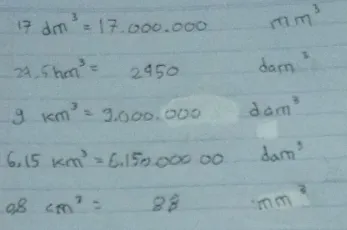 17 dm³ = 17.000.000 mm³
29.5 hm³ = 2950 dam³
9 km³ = 9.000.000 dam³
6.15 km³ = 6.150.000 00 dam³
08 cm³ = 88 mm³